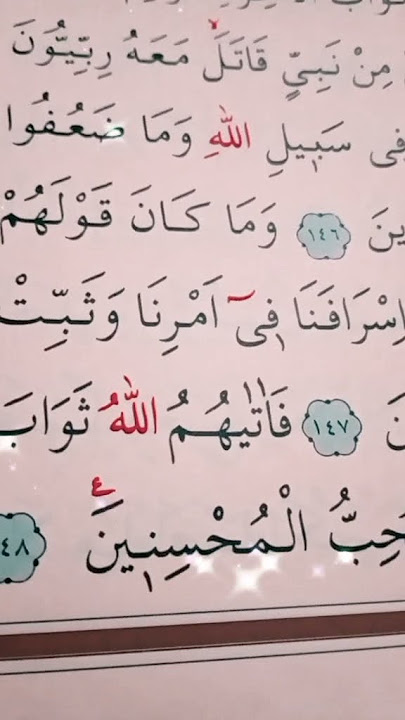 مِنْ نَبِيٍّ قَاتَلَ مَعَهُ رِبِّيُّونَ
فِى سَبِيلِ اللّٰهِ وَمَا ضَعُفُوا
ينَ ﴿١٤٦﴾ وَمَا كَانَ قَوْلَهُمْ
اِسْرَافَنَا فِىٓ اَمْرِنَا وَثَبِّتْ
نَ ﴿١٤٧﴾ فَاٰتٰيهُمُ اللّٰهُ ثَوَابَ
حِبُّ الْمُحْسِنِينَ ع ٤٨